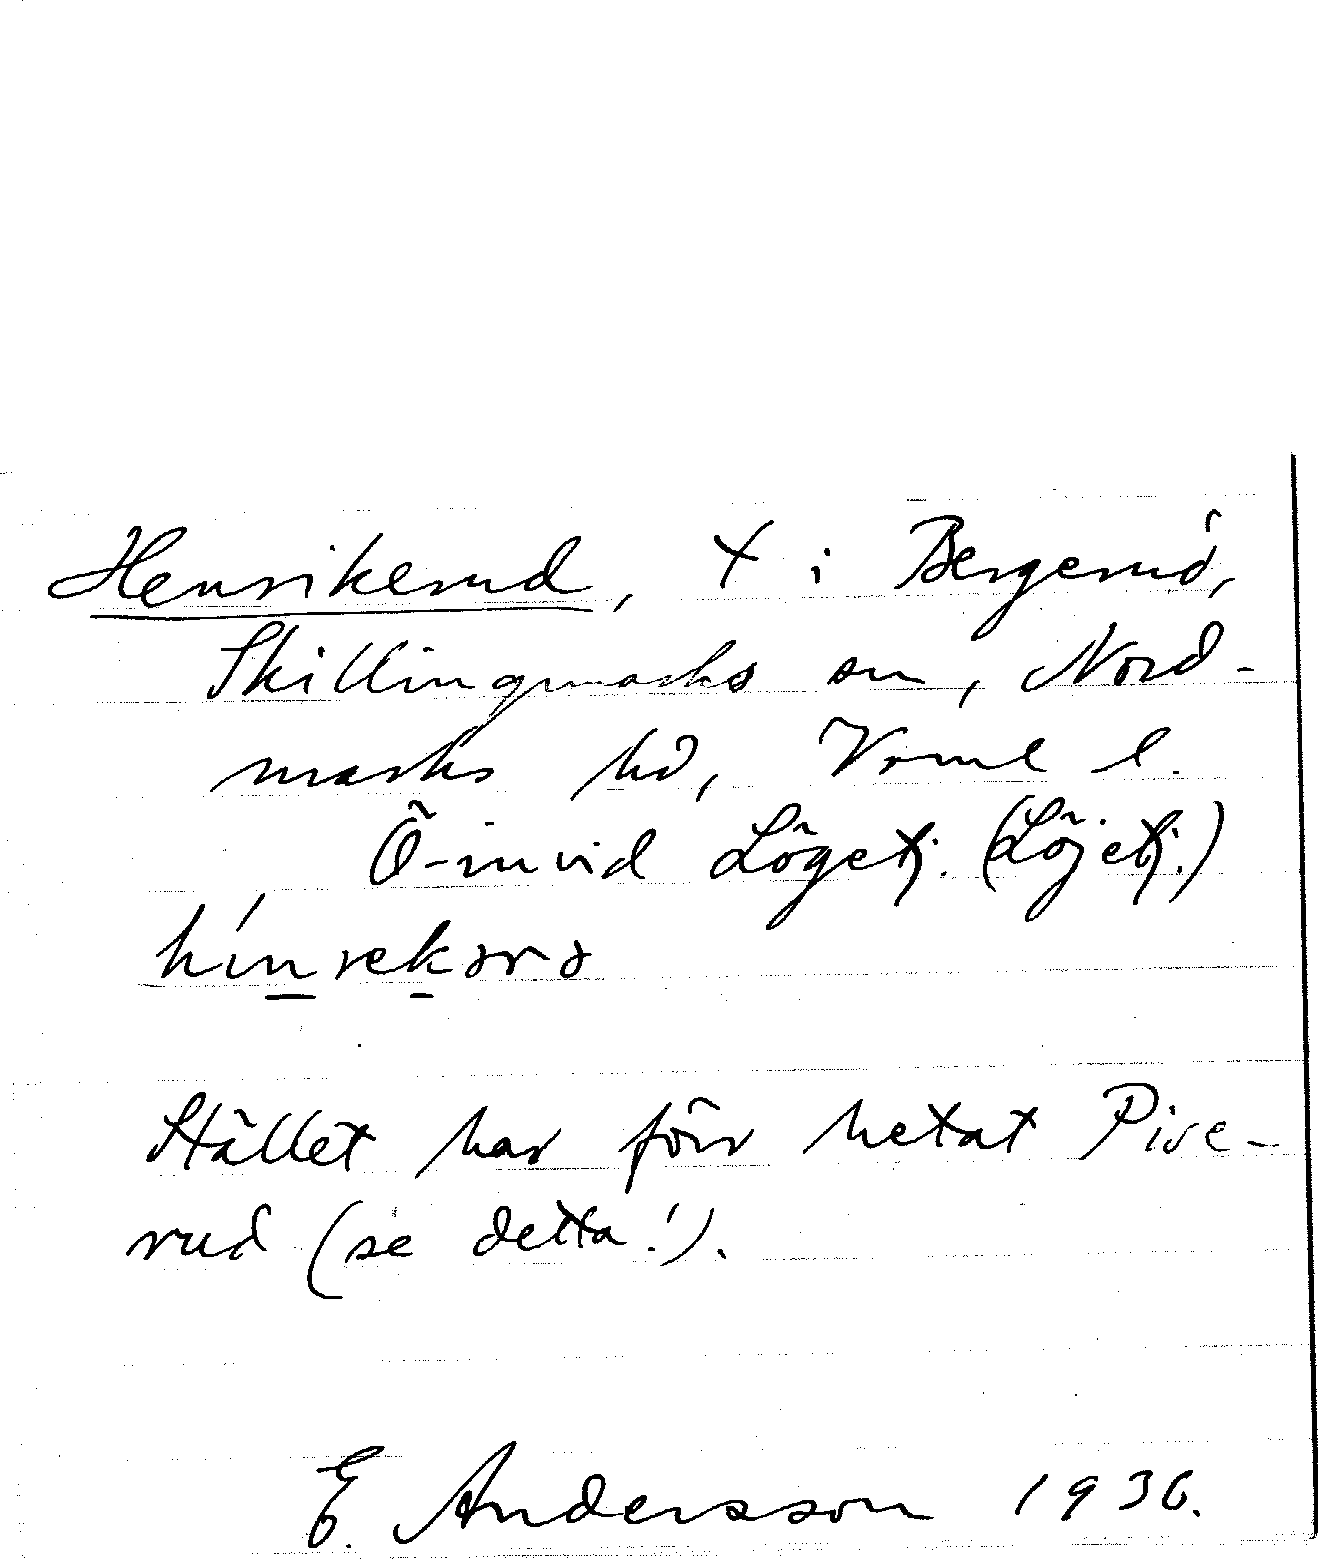 Henrikerud, t i Bergerud,
Skillingmarks sn, Nord-
marks hd, Vrml l.
Ö-in vid Lögetj. (Löjetj.)
hínrekərə
Stället har förr hetat Pise-
rud (se detta!).
E. Andersson 1936.